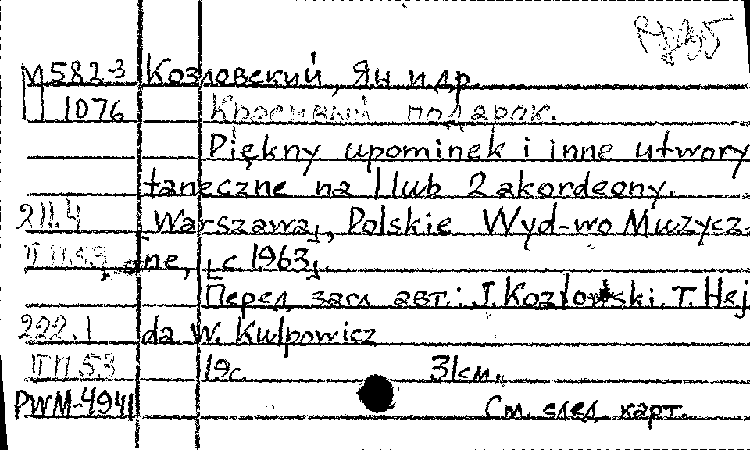 М582-3 Козловский, Ян и др.
1076 Красивый подарок.
Piękny upominek i inne utwory
taneczne na 1 lub 2 akordeony.
211.4 [Warszawa], Polskie Wyd-wo Muzycz-
ПП.53 ne, [c 1963].
Перед загл. авт.: J. Kozlowski, T. Hej
222.1 da W. Kulpowicz
ПП.53 19с. 31см.
PWM-4941 См. след. карт.